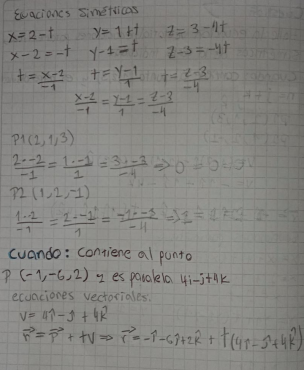 Ecuaciones Simétricas
x=2-t y=1+t z=3-4t
x-2=-t y-1=t z-3=-4t
t=x-2/-1 t=y-1/1 t=z-3/-4
x-2/-1=y-1/1=z-3/-4
P1(2,1,3)
2--2/-1=1--1/1=3+-3/-4 ⇒ 0=0=0
P2(1,2,-1)
cuando: contiene al punto
P(-1,-6,2) y es paralela 4i-j+4k
ecuaciones vectoriales:
V=4î-ĵ+4k̂
r⃗=P⃗+tv ⇒ r⃗=-î-6ĵ+2k̂+t(4î-ĵ+4k̂)